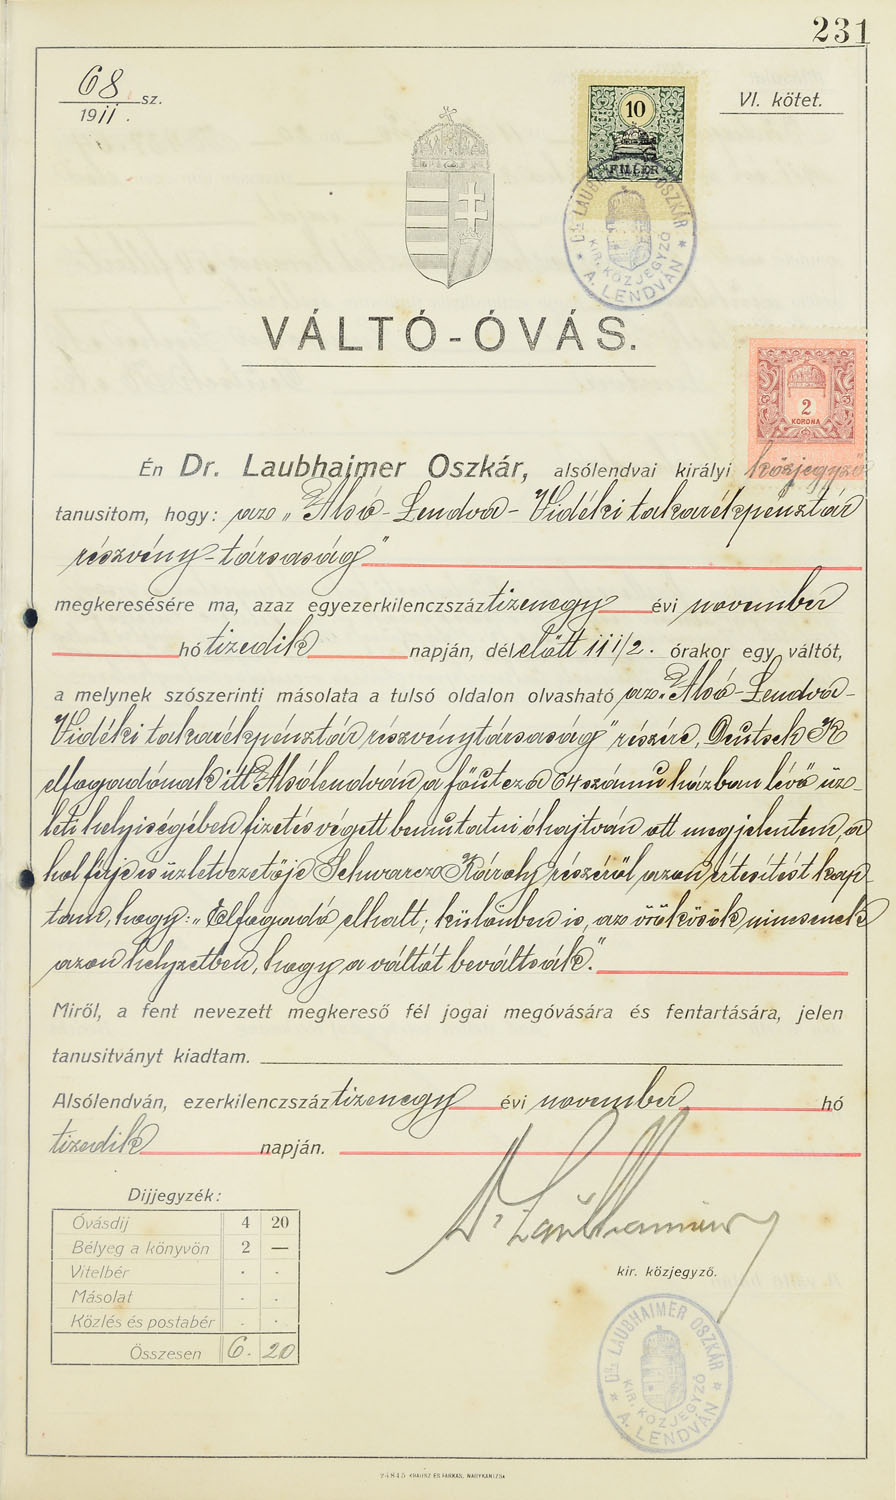 231
68 sz.
1911.
VI. kötet.
10
FILLÉR
DR. LAUBHAIMER OSZKÁR
KIR. KÖZJEGYZŐ
* A. LENDVÁN *
VÁLTÓ-ÓVÁS.
2
KORONA
Én Dr. Laubhaimer Oszkár, alsólendvai királyi közjegyző
tanusitom, hogy: az „Alsó-Lendva-Vidéki takarékpénztár
részvény-társaság"
megkeresésére ma, azaz egyezerkilenczszáz tizenegy évi november
hó tizedik napján, délelőtt 11 1/2. órakor egy váltót,
a melynek szószerinti másolata a tulsó oldalon olvasható az „Alsó-Lendva-
Vidéki takarékpénztár részvénytársaság" részére, Deutsch K
elfogadónak itt Alsólendván, a főutcza 64 számu házban lévő üz-
leti helyiségében fizetés végett bemutatni óhajtván ott megjelentem, a
hol férje is üzletvezetője Schwarcz Károly részéről azon értesítést kap-
tam, hogy: „Elfogadó elhalt; különben is, az örökösök nincsenek
azon helyzetben, hogy a váltót beváltsák."
Miről, a fent nevezett megkereső fél jogai megóvására és fentartására, jelen
tanusitványt kiadtam.
Alsólendván, ezerkilenczszáz tizenegy évi november hó
tizedik napján.
Dr Laubhaimer
kir. közjegyző.
Dijjegyzék:
Óvásdij 4 20
Bélyeg a könyvön 2 —
Vitelbér · ·
Másolat · ·
Közlés és postabér · ·
Összesen 6. 20
DR. LAUBHAIMER OSZKÁR
KIR. KÖZJEGYZŐ
* A. LENDVÁN *
24845 KRAUSZ ÉS FARKAS, NAGYKANIZSA